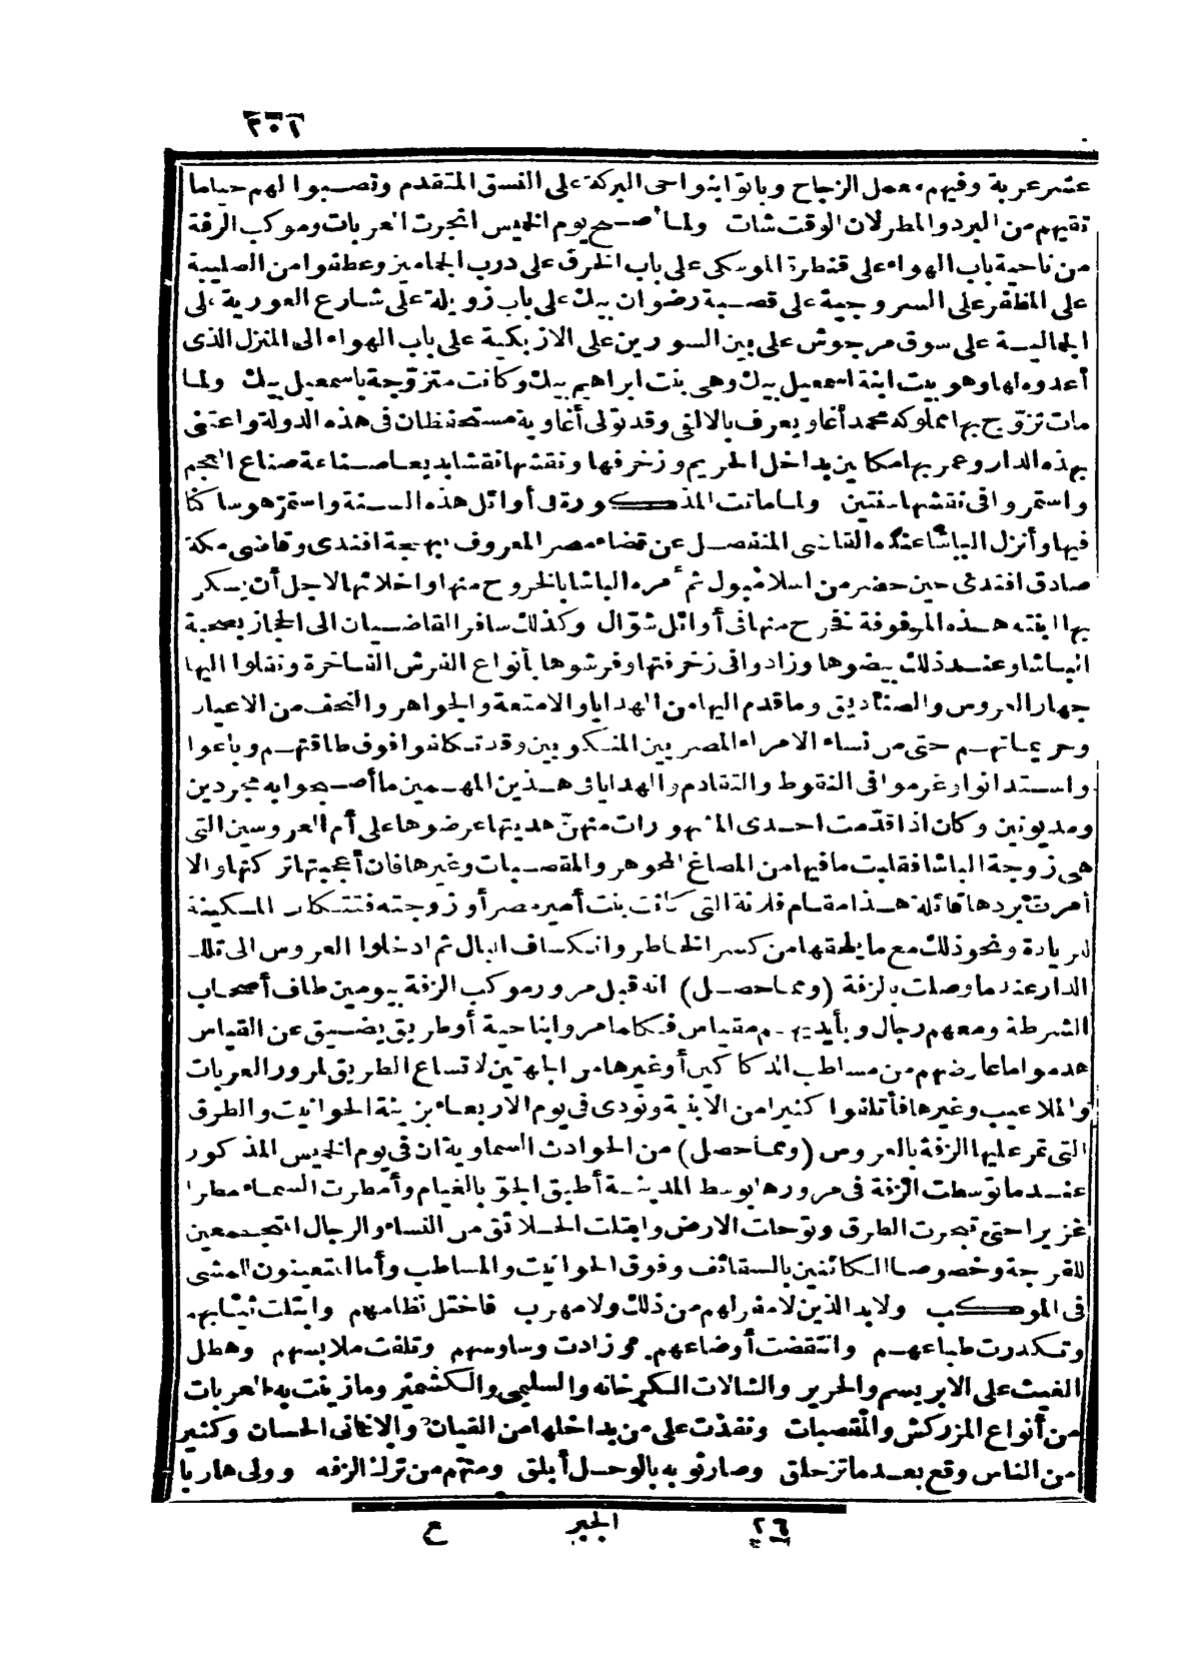 ٢٠١
عشر عربة وفيهم معمل الزجاج وباتوا بنواحى البركة على النسق المتقدم ونصبوا لهم خياما
تقيهم من البرد والمطر لان الوقت شات ولما أصبح يوم الخميس انجرت العربات وموكب الزفة
من ناحية باب الهواء على قنطرة الموسكى على باب الخرق على درب الجماميز وعطفوا من الصليبة
على المظفر على السروجية على قصبة رضوان بيك على باب زويلة على شارع الغورية على
الجمالية على سوق مرجوش على بين السورين على الازبكية على باب الهواء الى المنزل الذى
أعدوه لها وهو بيت ابنة اسمعيل بيك وهى بنت ابراهيم بيك وكانت متزوجة باسمعيل بيك ولما
مات تزوّج بها مملوكه محمد أغا ويعرف بالالفى وقد تولى أغاوية مستحفظان فى هذه الدولة واعتنى
بهذه الدار وعمر بها مكانين بداخل الحريم وزخرفها ونقشها نقشا بديعا صناعة صناع العجم
واستمروا فى نقشها سنتين ولما ماتت المذكورة فى أوائل هذه السنة واستمر هو ساكنا
فيها وأنزل الباشا عنده القاضى المنفصل عن قضاء مصر المعروف ببهجة افندى وقاضى مكة
صادق افندى حين حضر من اسلامبول ثم أمره الباشا بالخروج منها واخلائها لاجل أن يسكن
بها ابنته هذه المزفوفة فخرج منها فى أوائل شوّال وكذلك سافر القاضيان الى الحجاز بصحبة
الباشا وعند ذلك بيضوها وزادوا فى زخرفتها وفرشوها بأنواع الفرش الفاخرة ونقلوا اليها
جهاز العروس والصناديق وما قدم اليها من الهدايا والامتعة والجواهر والتحف من الاعيان
وحريماتهم حتى من نساء الامراء المصريين المنكوبين وقد تكلفوا فوق طاقتهم وباعوا
واستدانوا وغرموا فى النقوط والتقادم والهدايا فى هذين المهمين ما أصبحوا به مجردين
ومديونين وكان اذا قدّمت احدى المشهورات منهنّ هديتها عرضوها على أم العروسين التى
هى زوجة الباشا فقلبت ما فيها من المصاغ المجوهر والمقصبات وغيرها فان أعجبتها تركتها والا
أمرت بردها قائلة هذا مقام فلانة التى كانت بنت أمير مصر أو زوجته فتتكلف المسكينة
للزيادة ونحو ذلك مع ما يلحقها من كسر الخاطر وانكساف البال ثم ادخلوا العروس الى تلك
الدار عندما وصلت بالزفة (ومما حصل) انه قبل مرور موكب الزفة بيومين طاف أصحاب
الشرطة ومعهم رجال وبأيديهم مقياس فكلما مروا بناحية أو طريق يضيق عن القياس
هدموا ما عارضهم من مساطب الدكاكين أو غيرها من الجهتين لاتساع الطريق لمرور العربات
والملاعيب وغيرها فأتلفوا كثيرا من الابنية ونودى فى يوم الاربعاء بزينة الحوانيت والطرق
التى تمر عليها الزفة بالعروس (ومما حصل) من الحوادث السماوية ان فى يوم الخميس المذكور
عندما توسطت الزفة فى مرورها بوسط المدينة أطبق الجوّ بالغيام وأمطرت السماء مطرا
غزيرا حتى تبحرت الطرق وتوحلت الارض وابتلت الخلائق من النساء والرجال المتجمعين
للفرجة وخصوصا الكائنين بالسقائف وفوق الحوانيت والمساطب وأما المتعينون للمشى
فى الموكب ولابد الذين لا مفر لهم من ذلك ولا مهرب فاختل نظامهم وابتلت ثيابهم
وتكدرت طباعهم وانتقضت أوضاعهم وزادت وساوسهم وتلفت ملابسهم وهطل
الغيث على الابريسم والحرير والشالات الكرخانه والسليمى والكشمير وما زينت به العربات
من أنواع المزركش والمقصبات ونفذت على من بداخلها من القيان والاغانى الحسان وكثير
من الناس وقع بعدما تزحلق وصار ثوبه بالوحل أبلق ومنهم من ترك الزفه وولى هاربا
٢٦ الجبر ع